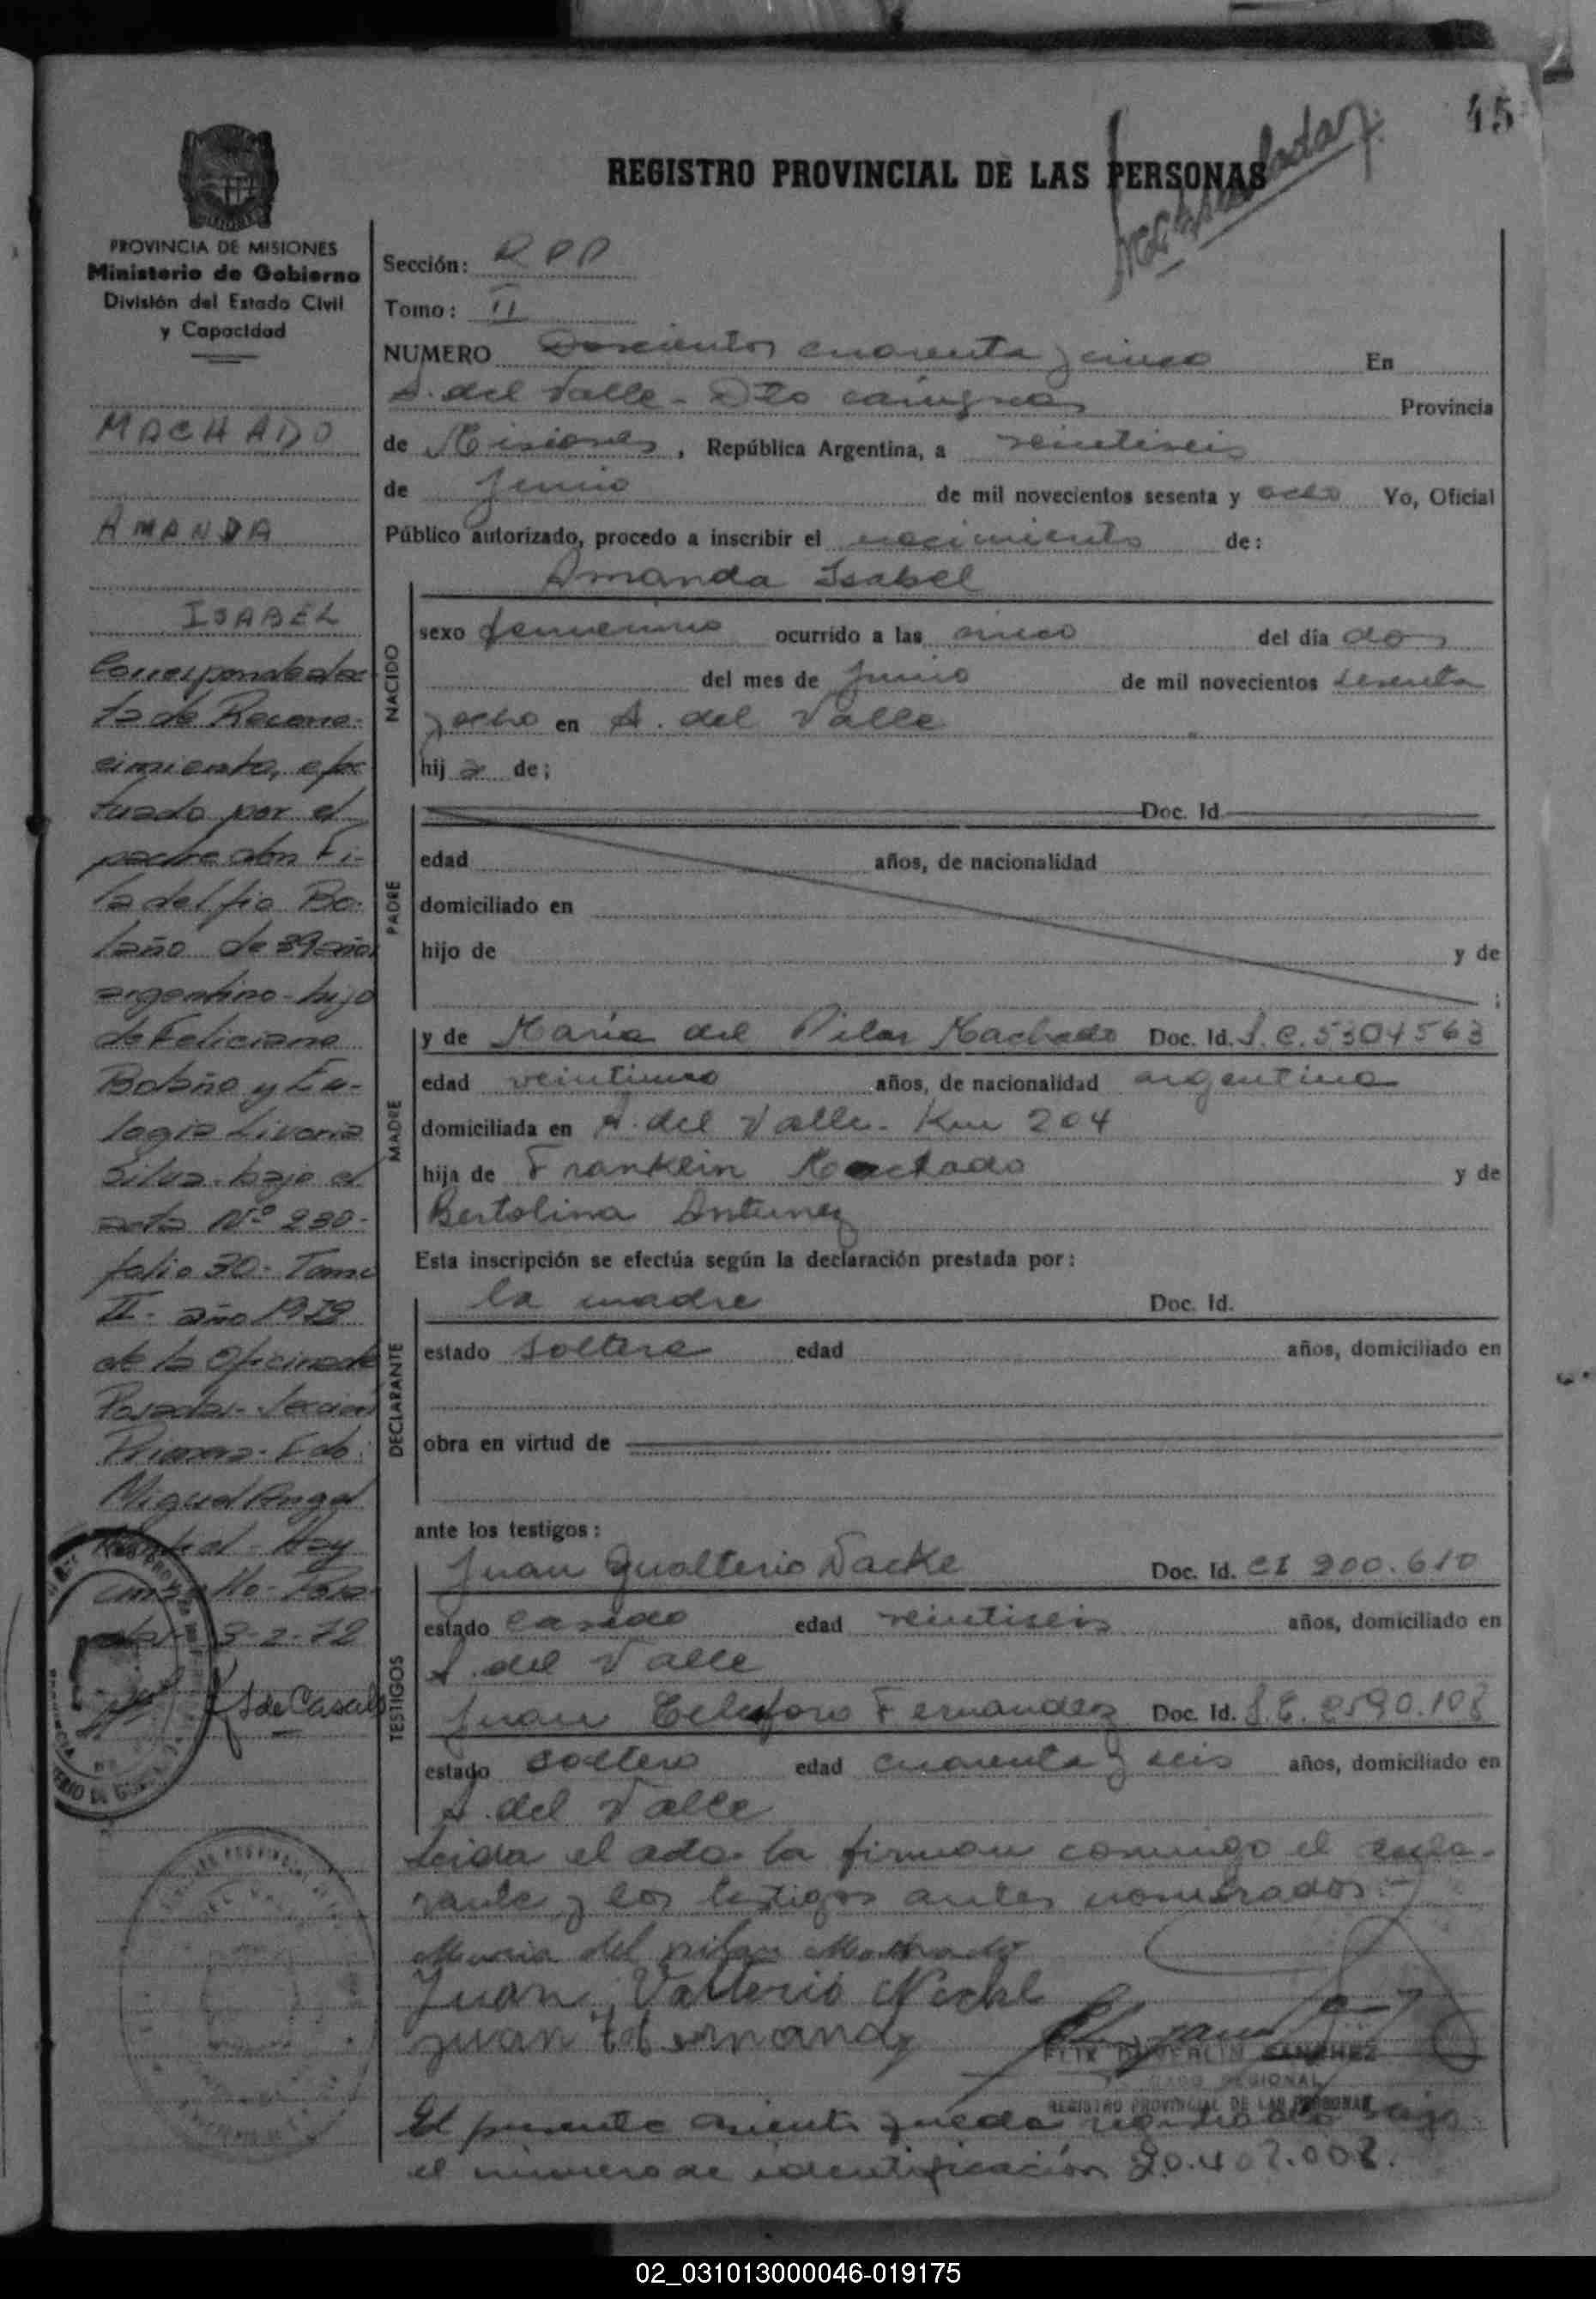 45
REGISTRO PROVINCIAL DE LAS PERSONAS
PROVINCIA DE MISIONES
Ministerio de Gobierno
División del Estado Civil
y Capacidad
MACHADO
AMANDA
ISABEL
Corresponde al ac-
ta de Recono-
cimiento, efec
tuado por el
padre don Fi-
ladelfio Bo-
laño de 39 años
argentino- hijo
de Feliciano
Bolaño y Eu-
logia Livoria
Silva- bajo el
acta Nº 230-
folio 30- Tomo
II- año 1972
de la Oficina de
Posadas- Sección
Primera- Fdo:
Miguel Angel
Hay
un sello- Posa-
das- 3-2-72
Sección: RPP
Tomo: II
NUMERO Doscientos cuarenta y cinco En
A. del Valle - Dto cainguas Provincia
de Misiones, República Argentina, a veintiseis
de Junio de mil novecientos sesenta y ocho Yo, Oficial
Público autorizado, procedo a inscribir el nacimiento de:
Amanda Isabel
NACIDO
sexo femenino ocurrido a las cinco del día dos
del mes de junio de mil novecientos sesenta
y ocho en A. del Valle
hij a de;
PADRE
Doc. Id.
edad años, de nacionalidad
domiciliado en
hijo de y de
;
MADRE
y de María del Pilar Machado Doc. Id. L.C. 5304563
edad años, de nacionalidad argentina
domiciliada en A. del Valle- Km 204
hija de Franklin Machado y de
Bertolina Antunez
Esta inscripción se efectúa según la declaración prestada por:
DECLARANTE
la madre Doc. Id.
estado soltera edad años, domiciliado en
obra en virtud de
ante los testigos:
TESTIGOS
Juan Gualterio Nacke Doc. Id. CI 200.610
estado casado edad veintiseis años, domiciliado en
A. del Valle
Juan Telesforo Fernandez Doc. Id. L.E. 2590.108
estado soltero edad cuarenta y seis años, domiciliado en
A. del Valle
Leida el acta la firman conmigo el decla-
rante y los testigos antes nombrados.-
Maria del pilar Machado
Juan Valterio
Juan T Fernandez
SANCHEZ
REGIONAL
REGISTRO PROVINCIAL DE LAS PERSONAS
El presente asiento queda registrado bajo
el numero de identificación 20.407.008.
02_031013000046-019175